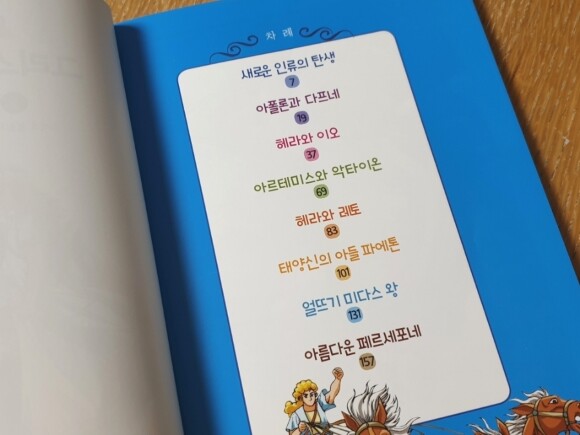 차 례
새로운 인류의 탄생
7
아폴론과 다프네
19
헤라와 이오
37
아르테미스와 악타이온
69
헤라와 레토
83
태양신의 아들 파에톤
101
얼뜨기 미다스 왕
131
아름다운 페르세포네
157